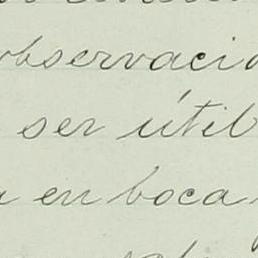 observacio
ser útil
en boca